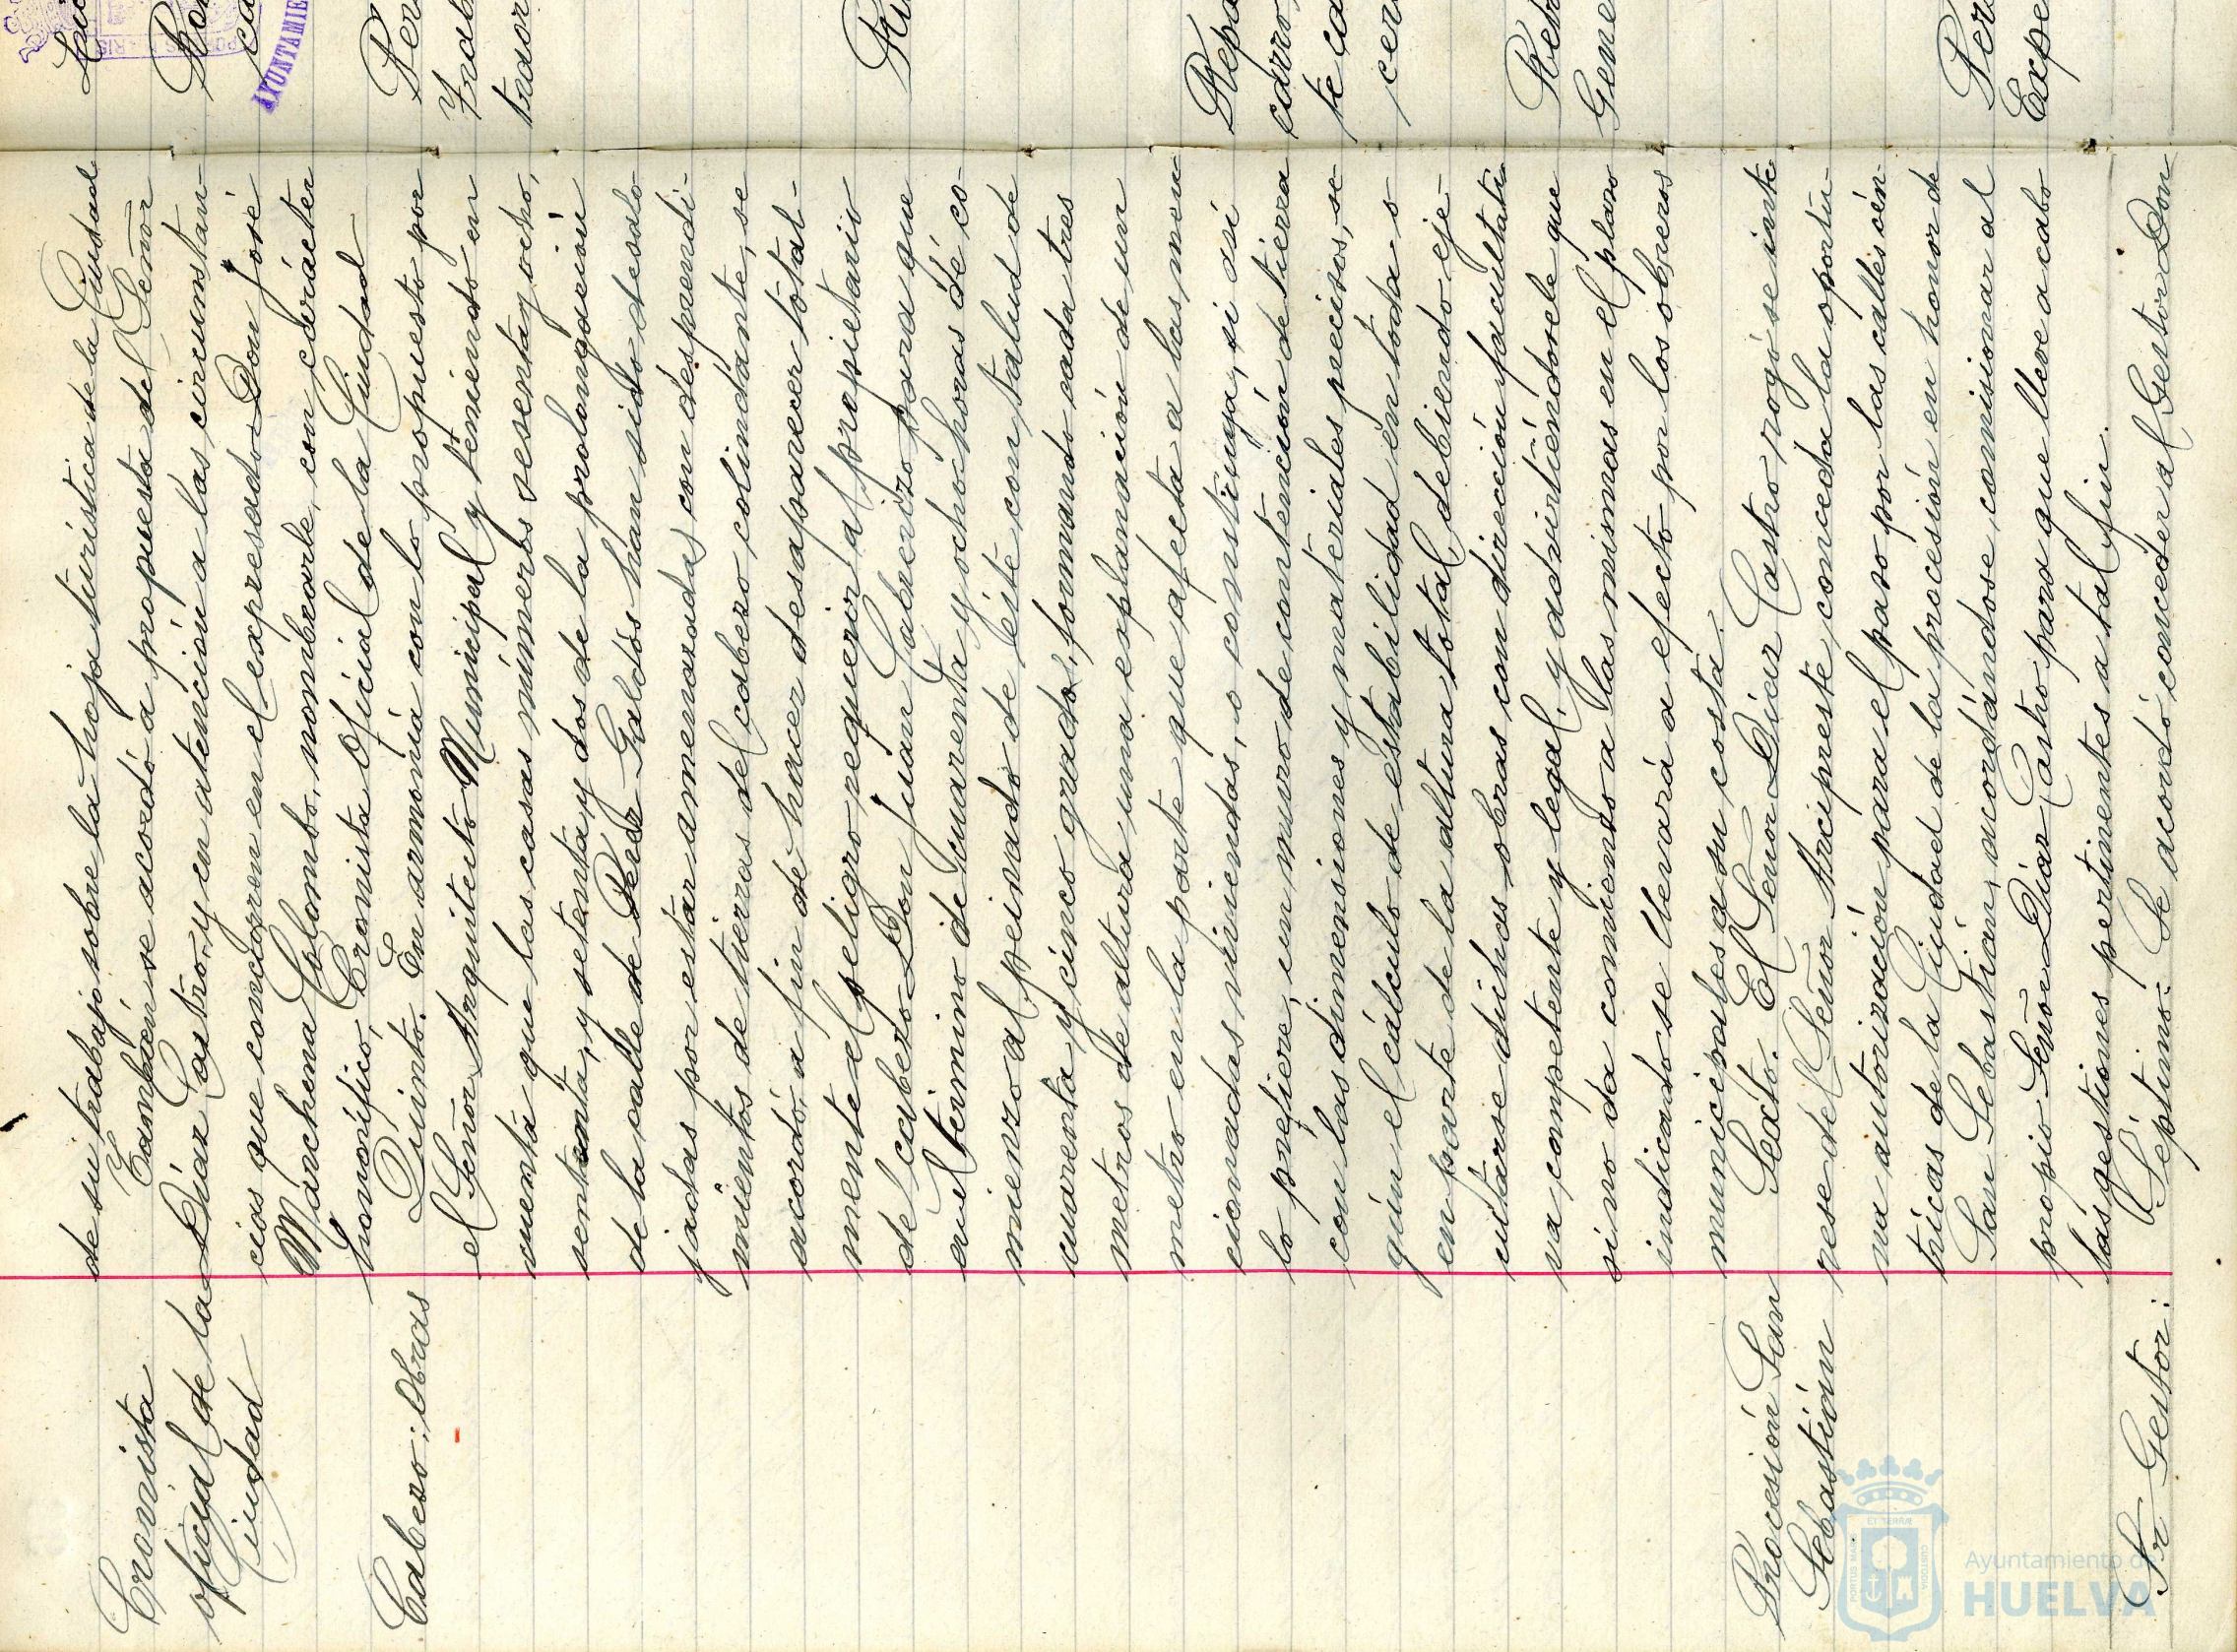 Cronista
oficial de la
Ciudad
de su trabajo sobre la hoja turística de la Ciudad
También se acordó a propuesta del Señor
Díaz Castro, y en atención a las circunstan-
cias que concurren en el expresado Don José
Manchena Colombo, nombrarle, con carácter
honorífico, Cronista Oficial de la Ciudad
Cabezo: Obras
Quinto. En armonía con lo propuesto por
el Señor Arquitecto Municipal y teniendo en
cuenta que las casas números sesenta y ocho,
sententa, y setenta y dos de la prolongación
de la calle de Pérez Galdós han sido desalo
jadas por estar amenazadas con desprendi-
mientos de tierras del cabezo colindante, se
acordó, a fin de hacer desaparecer total-
mente el peligro requerir al propietario
del cabezo Don Juan Cabecizo para que
en el término de cuarenta y ocho horas dé co-
mienzo al peinado de éste con talud de
cuarenta y cinco grados, formando cada tres
metros de altura una explanación de un
metro en la parte que afecta a las men
cionadas viviendas, o constituya, si así
lo prefiere, un muro de contención de tierra
con las dimensiones y materiales precisos, se-
gún el cálculo de estabilidad en toda o
en parte de la altura total, debiendo eje-
cutarse dichas obras con dirección facultati
va competente y legal, y advirtiéndosele que
si no da comienzo a las mismas en el plazo
indicado se llevará a efecto por los obreros
municipales a su costa.
Procesión San
Sebastián
Sexto. El Señor Díaz Castro rogó se inte
rese del Señor Arcipreste conceda la oportu-
na autorización para el paso por las calles cén-
tricas de la Ciudad de la procesión en honor de
San Sebastian, acordándose, comisionar al
propio Señor Díaz Castro para que lleve a cabo
las gestiones pertinentes a tal fin.
Sr Gestor:
Séptimo. Se acordó conceder al Gestor Don
AYUNTAMIE
Repa
carro,
te ca
cerr
Gene
Expe
trador
Ayuntamiento de
HUELVA